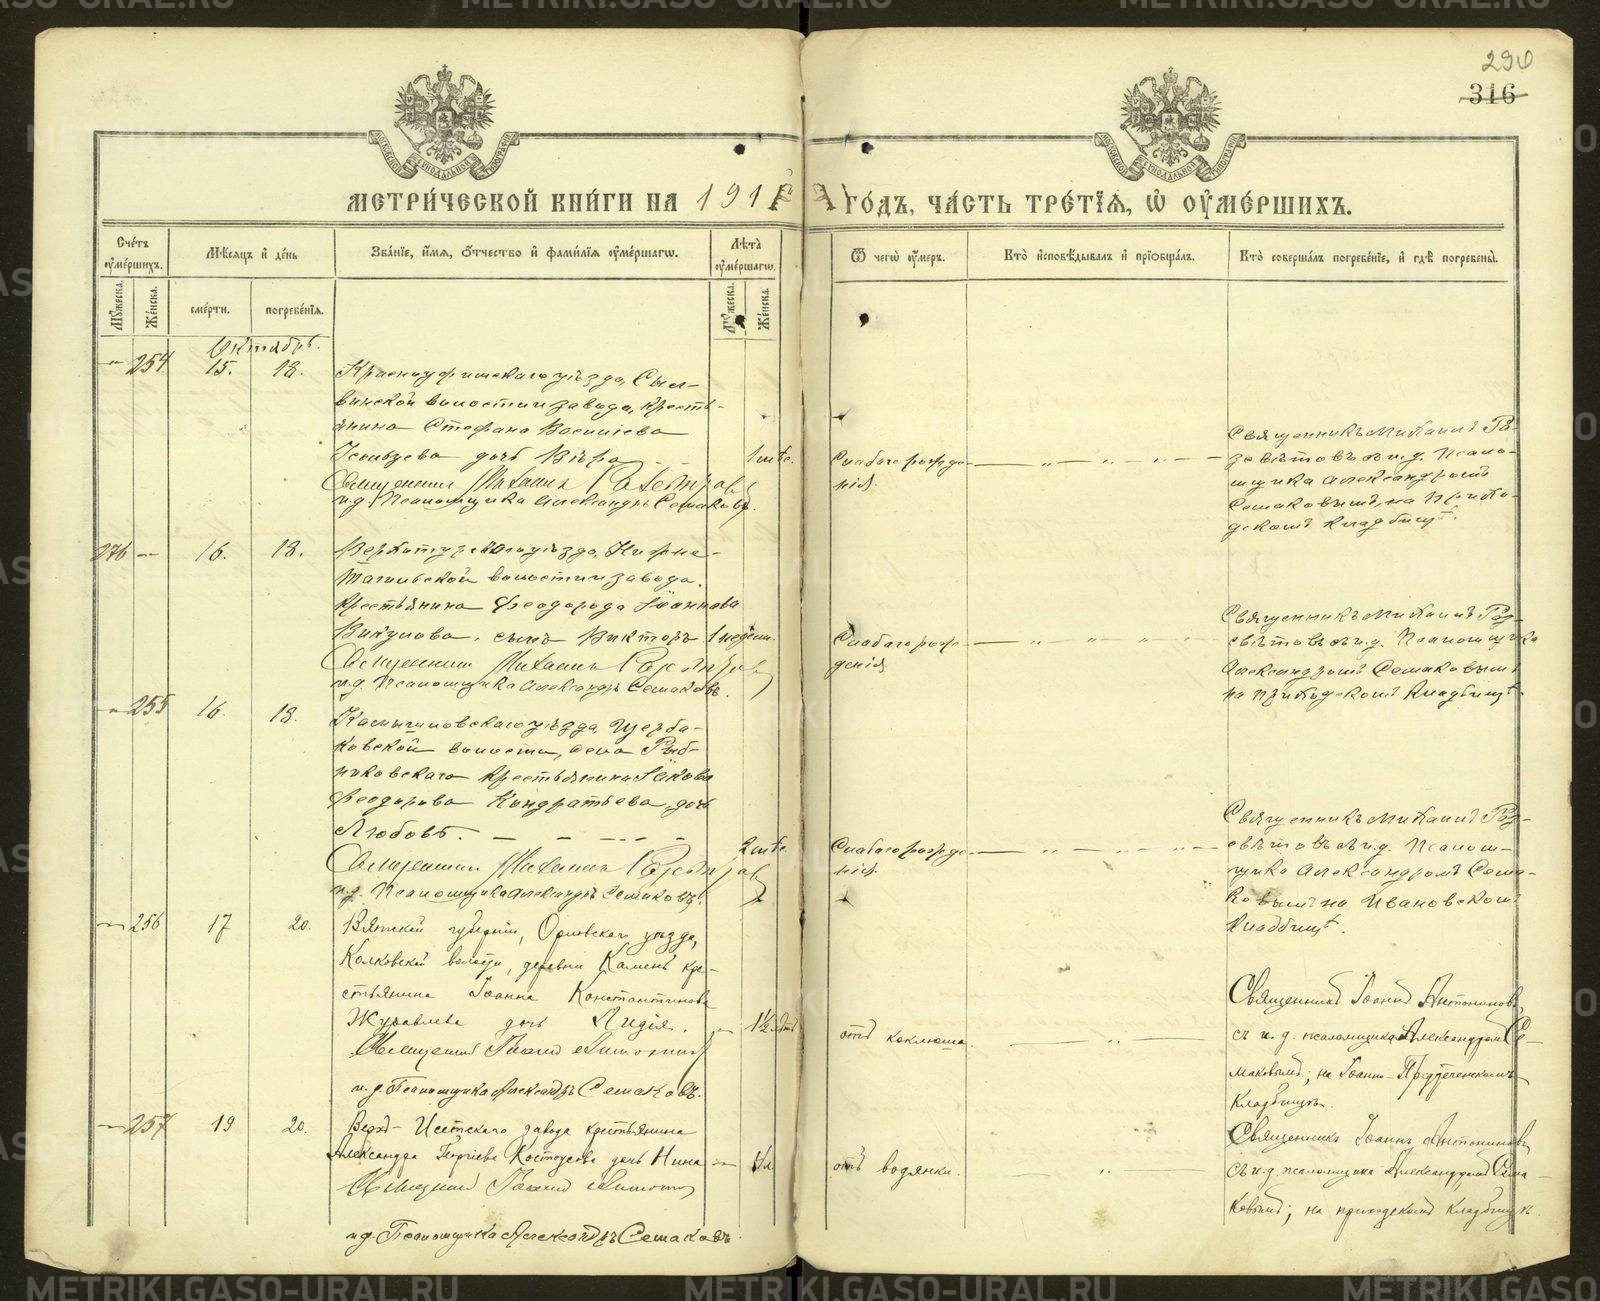 290
316
МЕТРИ́ЧЕСКОЙ КНИ́ГИ НА 191
ГО́ДЪ, ЧА́СТЬ ТРЕ́ТЇѦ, Ѡ ОУ҆МЕ́РШИХЪ.
Сче́тъ оу҆ме́ршихъ.
Мѣ́сяцъ и҆ де́нь
Зва́нїе, и҆́мя, ѻ҆́тчество и҆ фами́лїя оу҆ме́ршагѡ.
Лѣ́та оу҆ме́ршагѡ.
Ѿ чегѡ̀ оу҆́меръ.
Кто̀ и҆сповѣ́дывалъ и҆ прїѡбща́лъ.
Кто̀ соверша́лъ погребе́нїе, и҆ гдѣ̀ погребены̀.
Мꙋ́жеска.
Же́нска.
сме́рти.
погребе́нїя.
Мꙋ́жеска.
Же́нска.
Октябрь.
— 254 15. 18. Красноуфимскаго уѣзда, Сыл-
винской волости и завода, кресть-
янина Стефана Васильева
дочь Вѣра 1 мѣс.
Священникъ Михаилъ
и.д. Псаломщика Александръ Семаковъ.
Слабаго рожде-
нія.
Священникъ Михаилъ
съ и.д. Псало-
мщика Александромъ
Семаковымъ, на Прихо-
дскомъ кладбищѣ.
276 — 16. 18. Верхотурскаго уѣзда, Нижне-
Тагильской волости и завода,
крестьянина Феодора Іоаннова
Викулова, сынъ Викторъ 1 недѣли.
Священникъ Михаилъ
и.д. Псаломщика Александръ Семаковъ.
Слабаго рож-
денія
Священникъ Михаилъ
съ и.д. Псаломщика
Александромъ Семаковымъ
на Приходскомъ Кладбищѣ.
— 255 16. 18. Камышловскаго уѣзда, Щерба-
ковской волости, села Рыб-
никовскаго крестьянина Іакова
Феодорова Кондратьева, дочь
Любовь. 2 мѣс.
Священникъ Михаилъ
и.д. Псаломщика Александръ Семаковъ.
Слабаго рожде-
нія.
Священникъ Михаилъ
съ и.д. Псалом-
щика Александромъ Сема-
ковымъ на Ивановскомъ
Кладбищѣ.
— 256 17 20. Вятской губерніи, Орловскаго уѣзда,
Колковской волости, деревни Камень кре-
стьянина Іоанна Константинова
Журавлева дочь Лидія. — 1½
Священникъ Іоаннъ
и.д. Псаломщика Александръ Семаковъ.
отъ коклюша.
Священникъ Іоаннъ Антониновъ,
съ и.д. псаломщика Александромъ Се-
маковымъ; на Іоанно-Предтеченскомъ
Кладбищѣ.
— 257 19 20. Верхъ-Исетскаго завода крестьянина
Александра Георгіева дочь Нина —
Священникъ Іоаннъ
и.д. Псаломщика Александръ Семаковъ.
отъ водянки.
Священникъ Іоаннъ Антониновъ
съ и.д. псаломщика Александромъ Сема-
ковымъ; на приходскомъ кладбищѣ.
METRIKI.GASO-URAL.RU